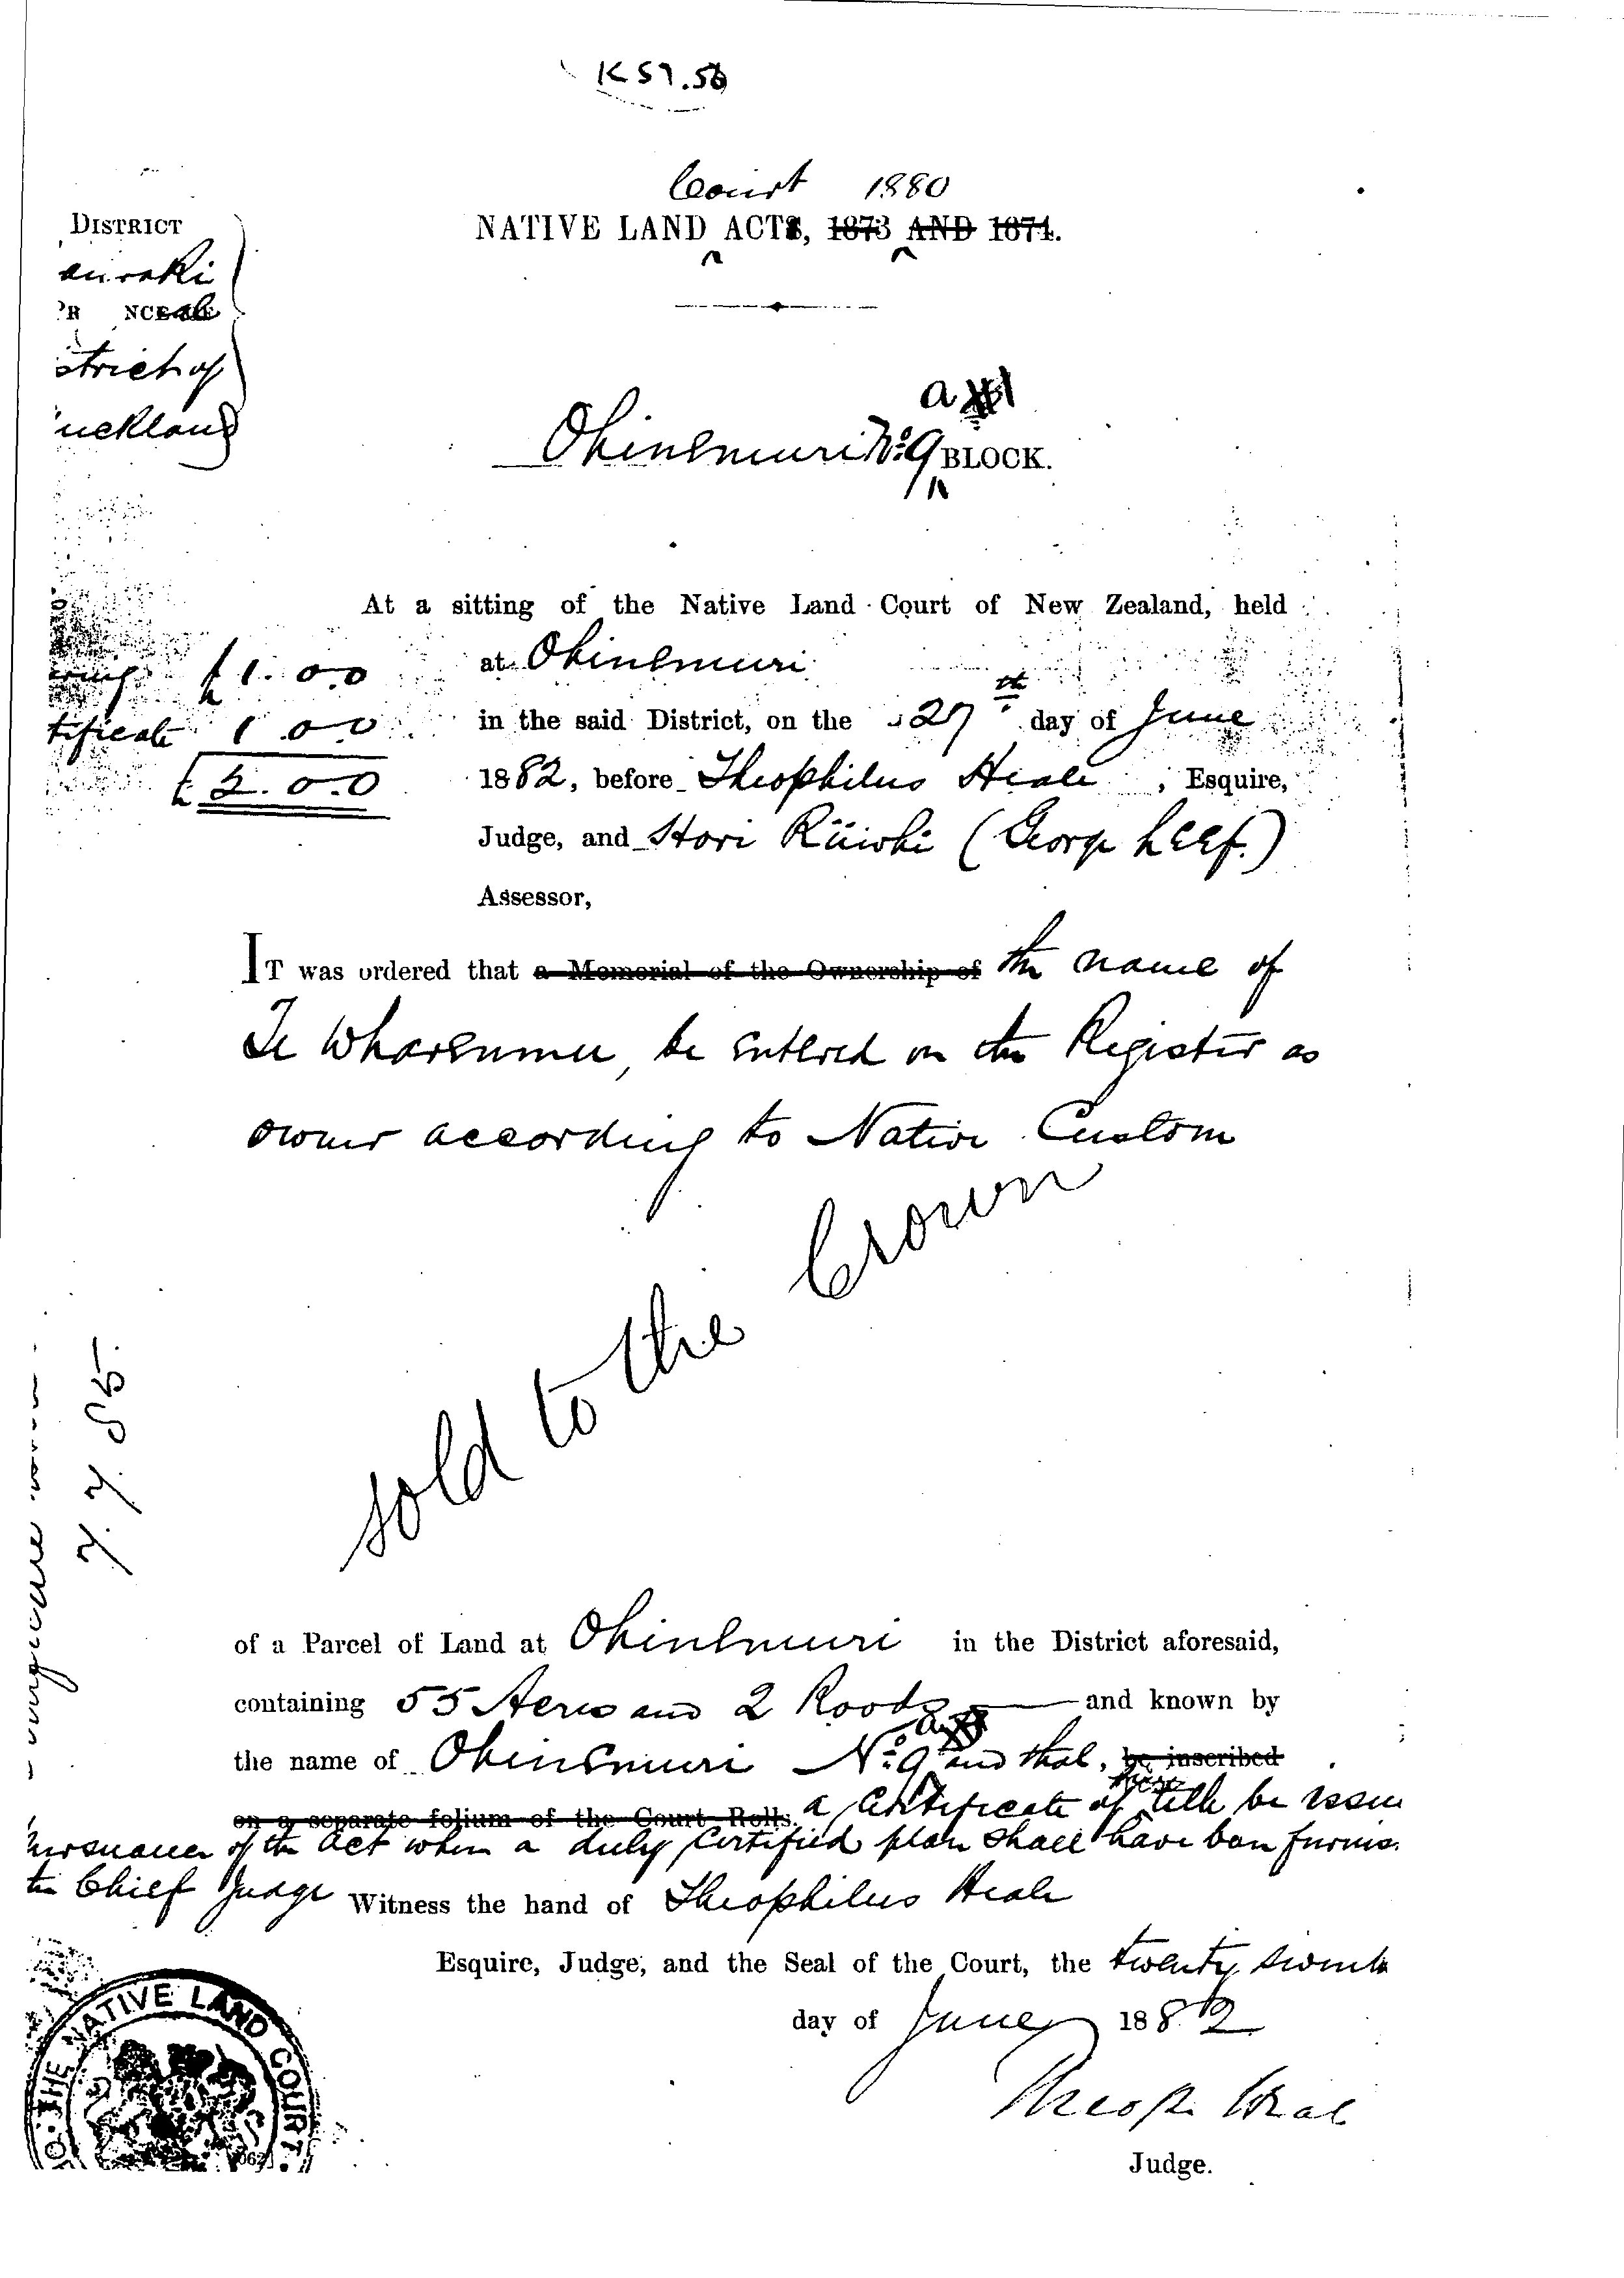 K 59.56
Court 1880
NATIVE LAND ACTS, 1873 AND 1874.
DISTRICT
auraki
NCE
strict of
uckland
a
Ohinemuri No. 9 BLOCK.
At a sitting of the Native Land Court of New Zealand, held
at Ohinemuri
in the said District, on the 27th day of June
1882, before Theophilus Heale, Esquire,
Judge, and Hori Riiwhi (George Leef.)
Assessor,
£1.0.0
tificate 1.0.0
£2.0.0
IT was ordered that a Memorial of the Ownership of the name of
Te Wharenuu, be entered on the Register as
owner according to Native Custom
sold to the Crown
7.7.85.
of a Parcel of Land at Ohinemuri in the District aforesaid,
containing 55 Acres and 2 Roods and known by
the name of Ohinemuri No. 9 a and that, be inscribed
on a separate folium of the Court Rolls. a Certificate of title be issu
ursuance of the Act when a duly certified plan shall have been furnis
the Chief Judge Witness the hand of Theophilus Heale
Esquire, Judge, and the Seal of the Court, the twenty seventh
day of June 1882
Theoph Heale
Judge.
THE NATIVE LAND COURT